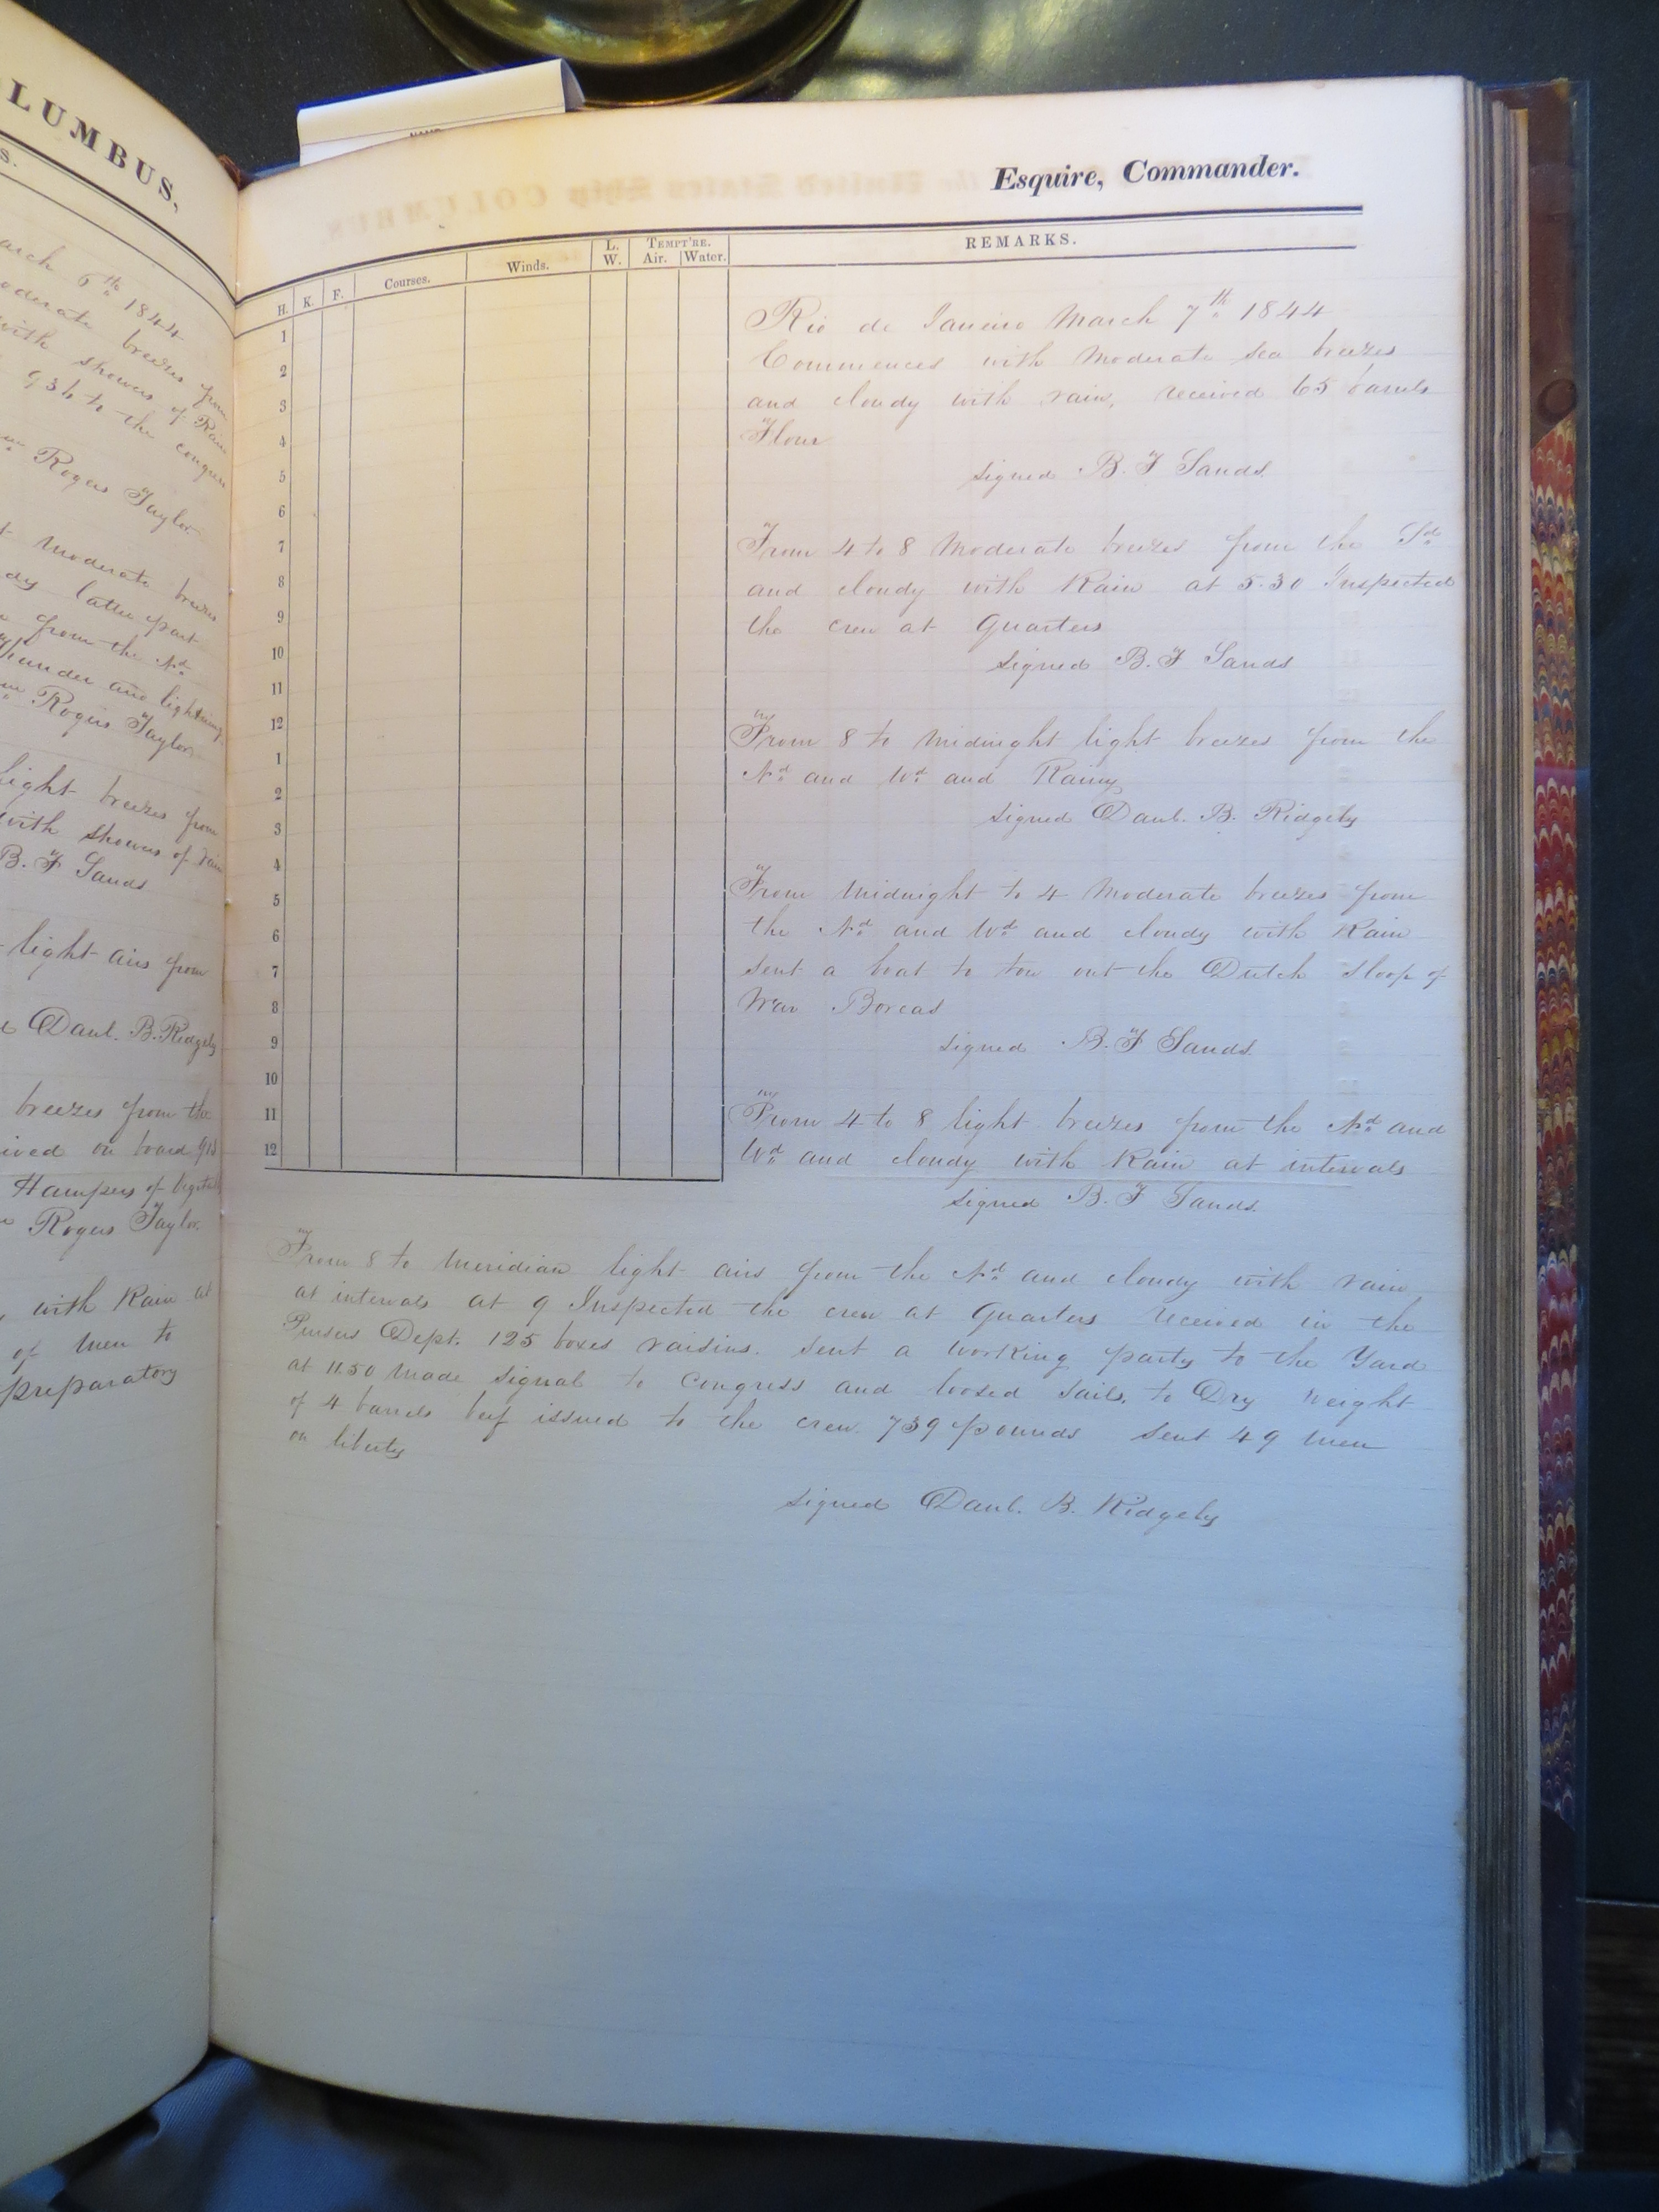 LUMBUS,
s.
arch 6th 1844
oderate breezes from
with showers of Rain
936 to the congress
Rogers Taylor
t moderate breezes
dy latter part
from the Nd
thunder and lightning
Rogers Taylor
light breezes from
with showers of rain
B. F Sands
light airs from
Danl. B. Ridgely
breezes from the
ived on board 910
Hampers of Vegetab
Rogers Taylor.
, with Rain at
of men to
preparatory
NAME
Esquire, Commander.
H. K. F. Courses. Winds. L. W. TEMPT'RE. Air. Water. REMARKS.
1
2
3
4
5
6
7
8
9
10
11
12
1
2
3
4
5
6
7
8
9
10
11
12
Rio de Janeiro March 7th 1844
Commences with Moderate sea breezes
and cloudy with rain, received 65 barrels
Flour
signed B. F Sands.
From 4 to 8 Moderate breezes from the Sd
and cloudy with Rain at 5.30 Inspected
the crew at Quarters
signed B. F Sands
From 8 to Midnight light breezes from the
Nd and Wd and Rainy
signed Danl. B. Ridgely
From Midnight to 4 Moderate breezes from
the Nd and Wd and cloudy with Rain
sent a boat to tow out the Dutch Sloop of
War Boreas
signed B. F Sands.
From 4 to 8 light breezes from the Nd and
Wd and cloudy with Rain at intervals
signed B. F Sands.
From 8 to Meridian light airs from the Nd and cloudy with rain
at intervals at 9 Inspected the crew at Quarters received in the
Pursers Dept. 125 boxes raisins. sent a working party to the Yard
at 11.50 made signal to Congress and loosed sails, to Dry weight
of 4 barrels beef issued to the crew. 739 pounds sent 49 men
on liberty
signed Danl. B. Ridgely